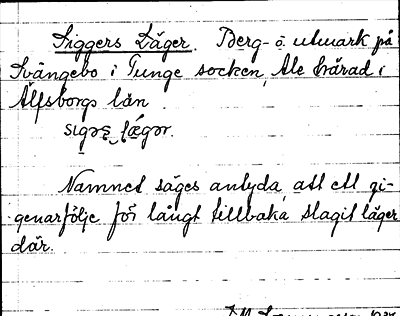 Siggers Läger. Berg- o. utmark på
Svängebo i Tunge socken, Ale härad i
Älfsborgs län.
sɩgəş lǽgər.
Namnet säges antyda, att ett zi-
genarfölje för långt tillbaka slagit läger
där.